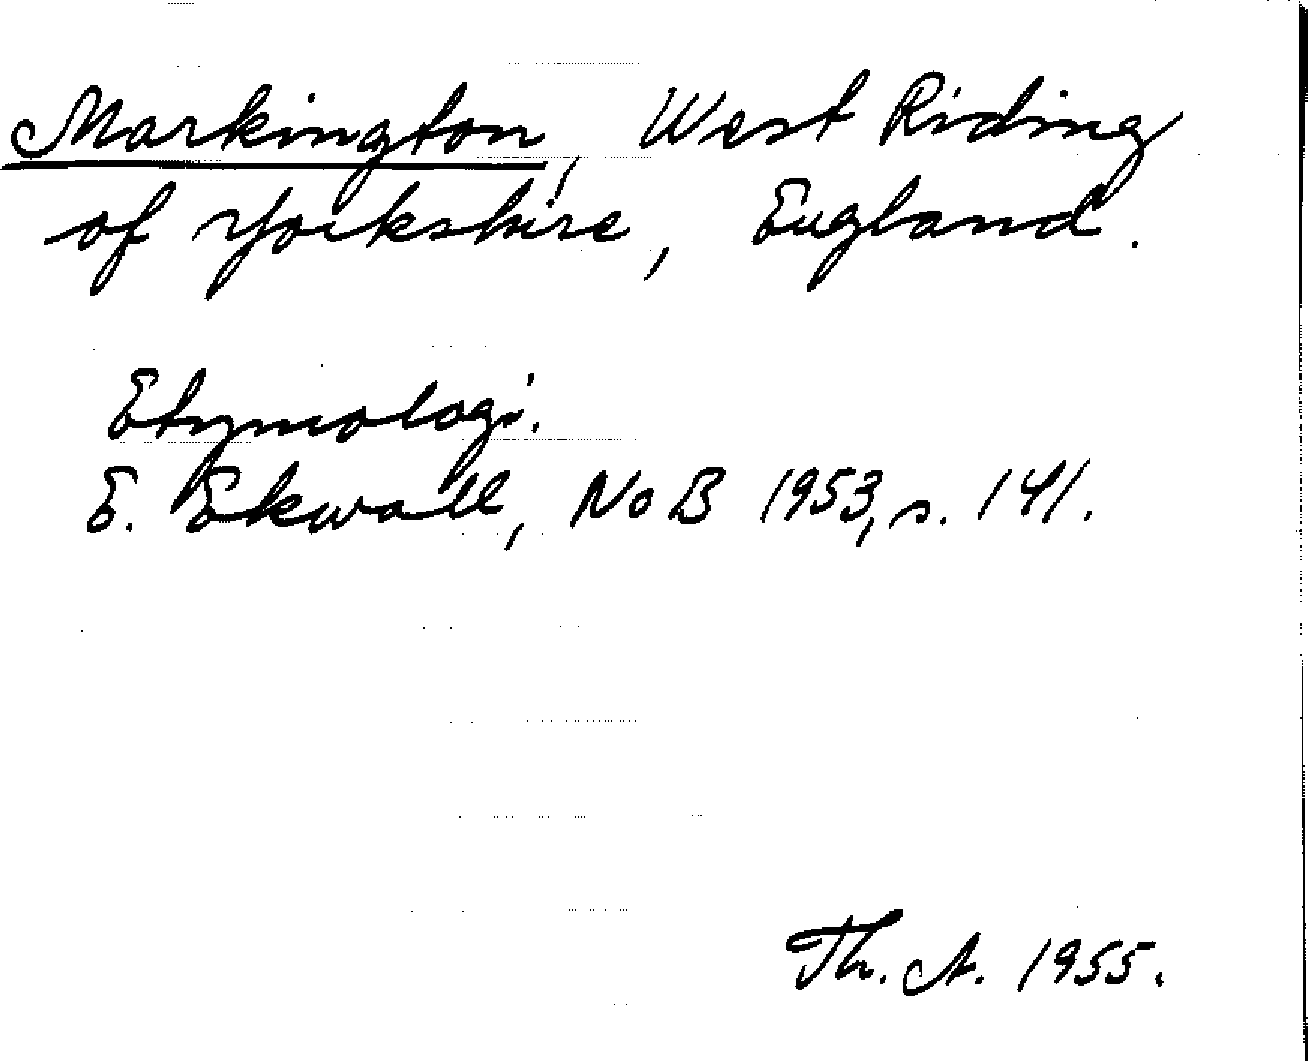 Markington, West Riding
of Yorkshire, England.
Etymologi.
E. Ekwall, NoB 1953, s. 141.
Th. A. 1955.